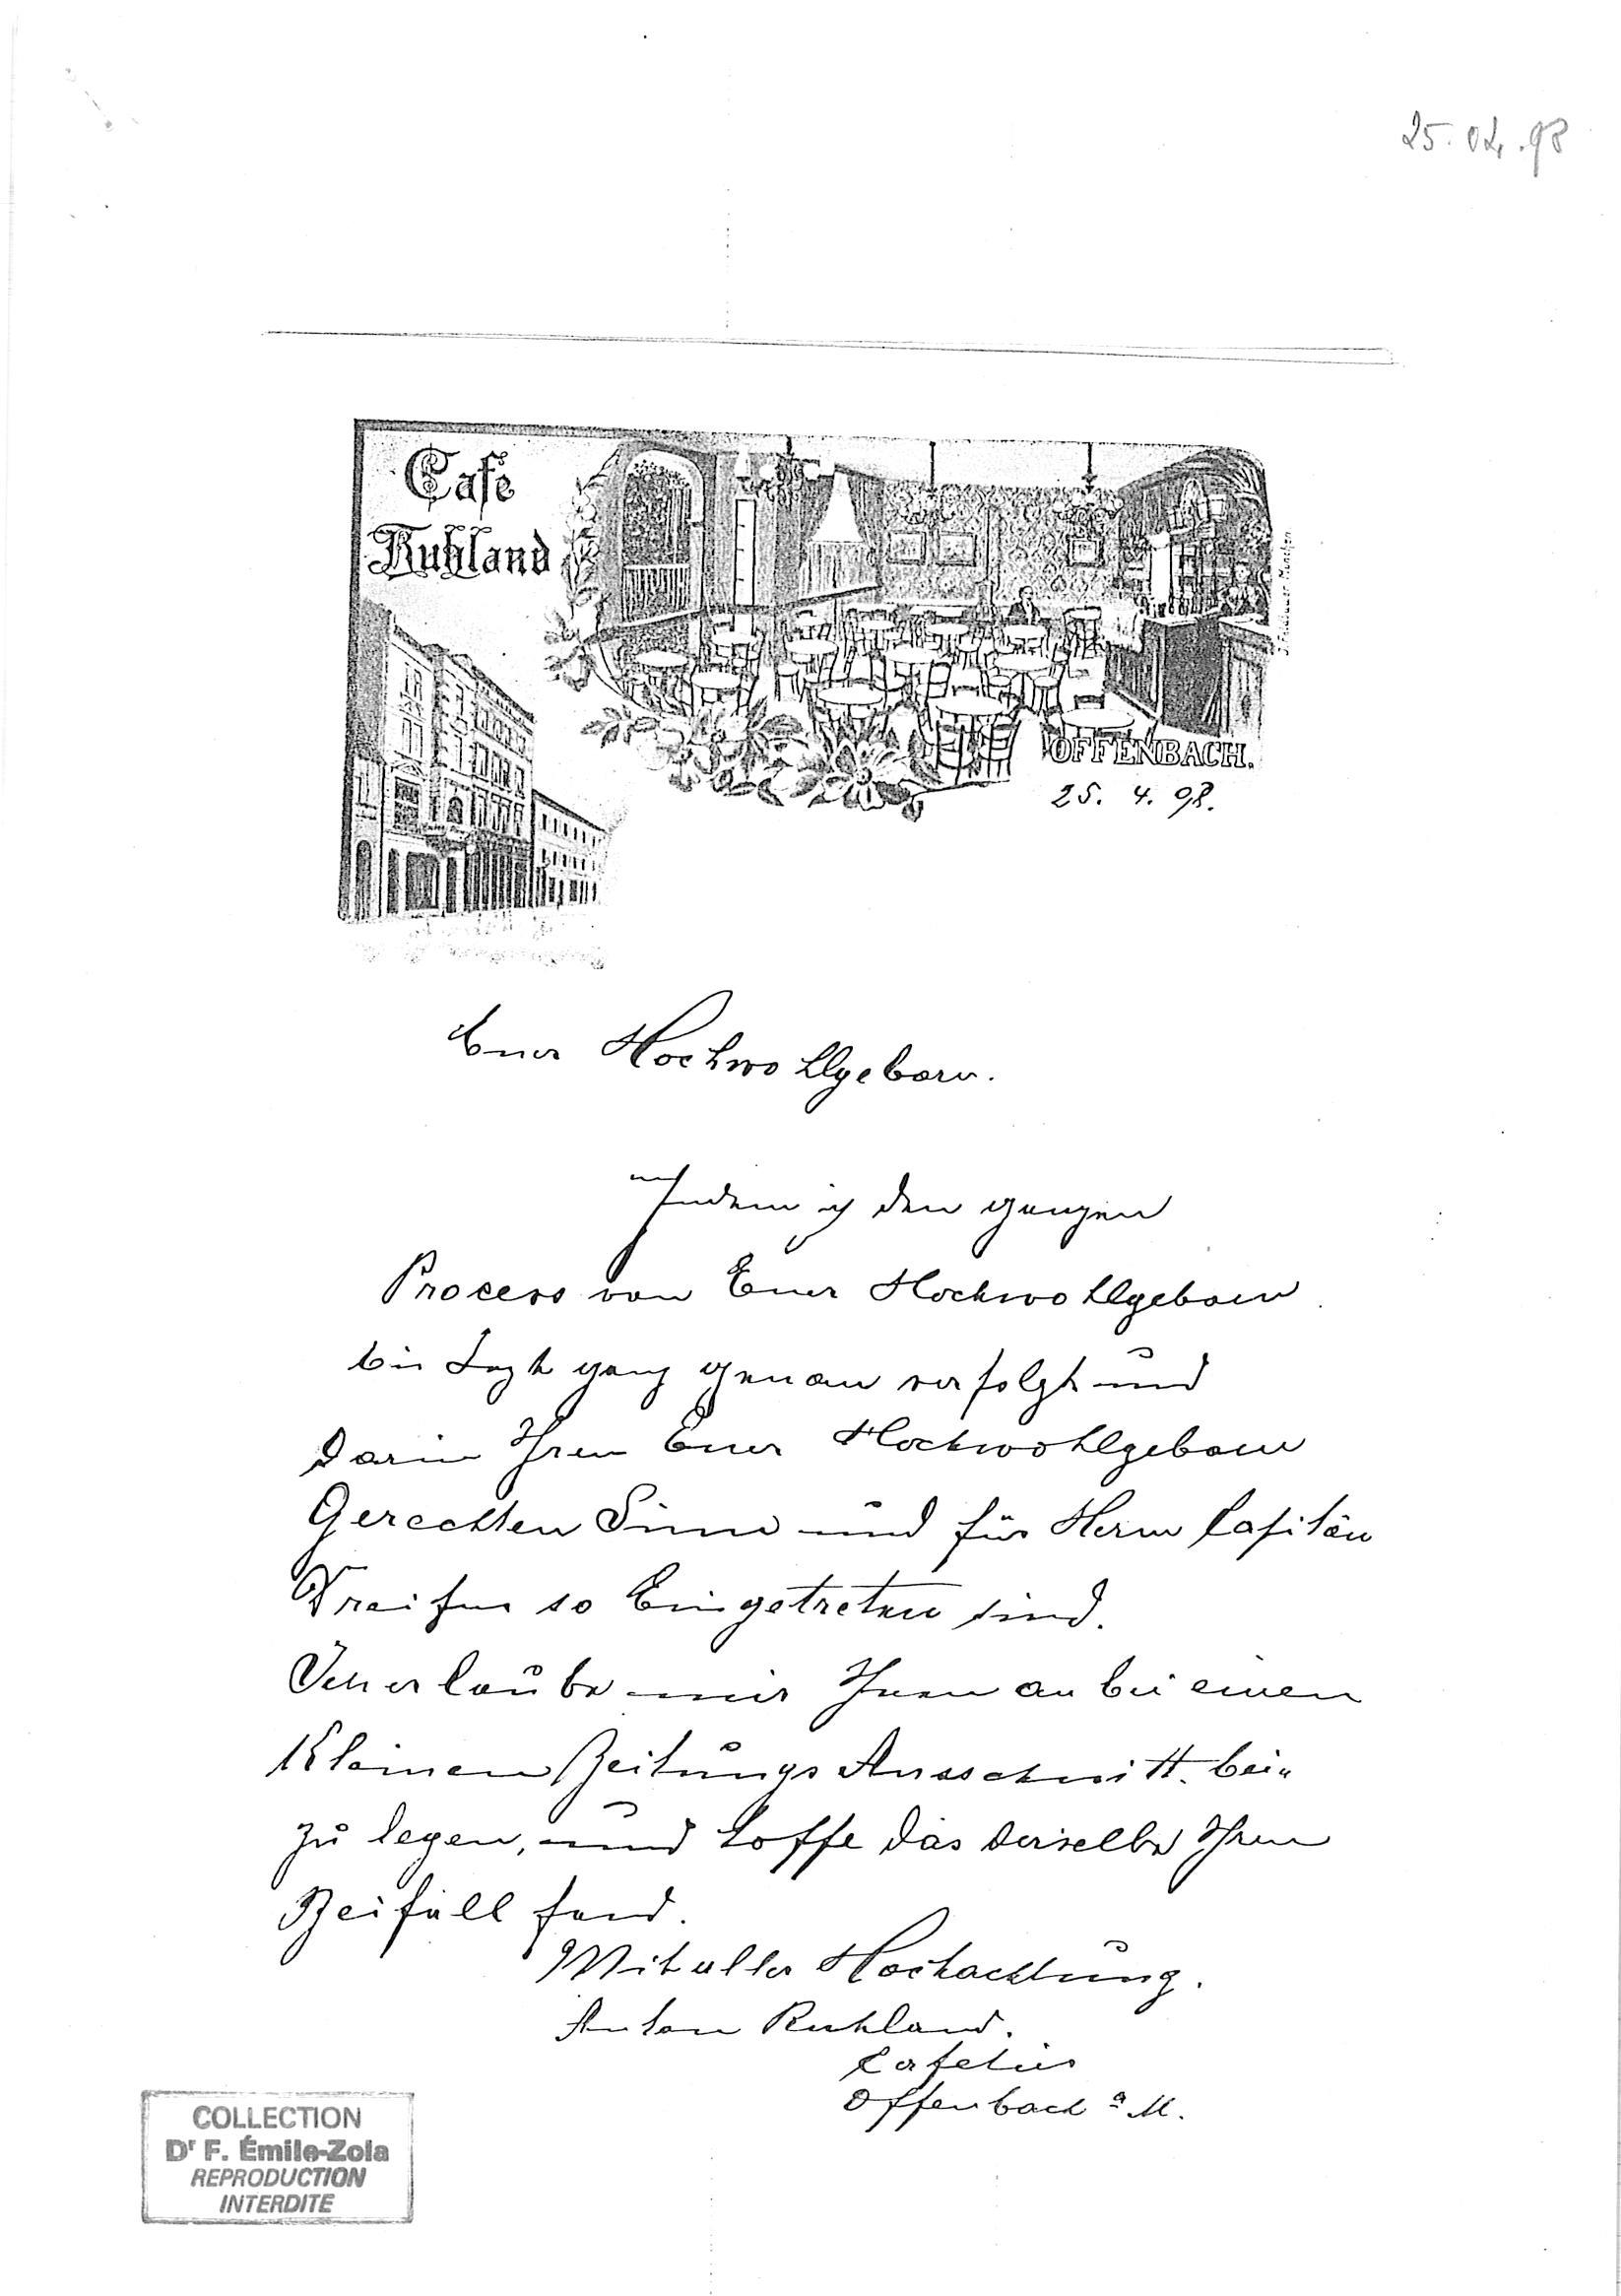 25.04.98
Cafe
Ruhland
OFFENBACH.
25. 4. 98.
Euer Hochwohlgeborn.
Indem ich den ganzen
Process von Euer Hochwohlgeborn
bis Jezt ganz genau verfolgt und
darin Ihren Euer Hochwohlgeborn
Gerechten Sinn und für Herrn Capitän
Dreifus so Eingetreten sind.
Ich erlaube mir Ihnen anbei einen
Kleinen Zeitungs Ausschnitt bei„
zu legen, und hoffe das derselbe Ihren
Beifall fand.
Mit aller Hochachtung.
Anton Ruhland.
Cafetier
Offenbach a M.
COLLECTION
Dr F. Émile-Zola
REPRODUCTION
INTERDITE